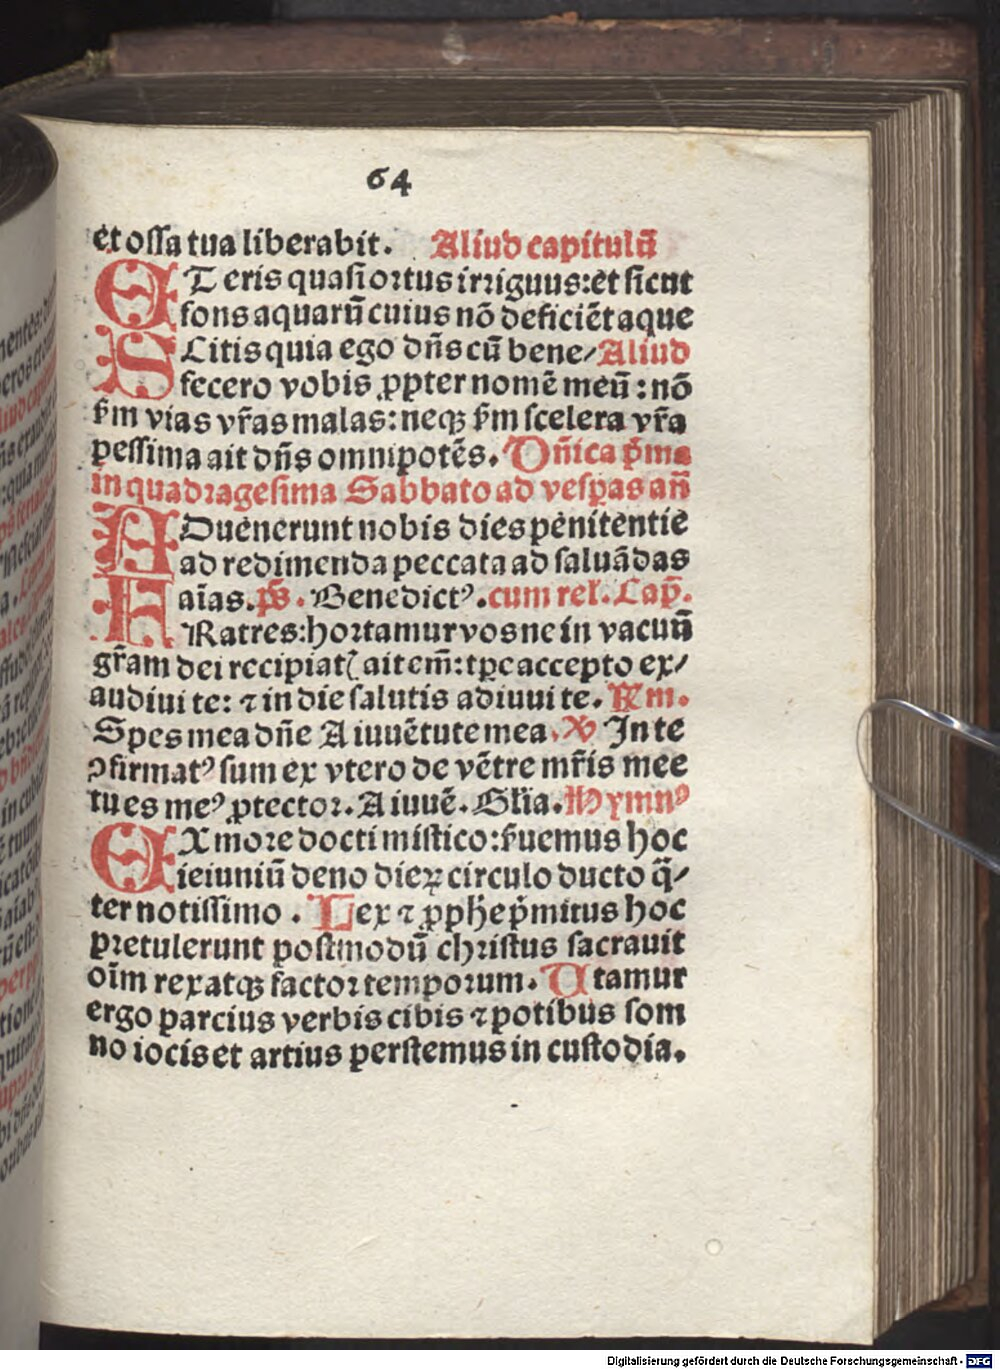 64
et ossa tua liberabit. Aliud capitulū
ET eris quasi ortus irriguus: et sicut
fons aquarū cuius nō deficiēt aque
SCitis quia ego dn̄s cū bene/ Aliud
fecero vobis ꝓpter nomē meū: nō
ẜm vias vr̄as malas: neqꝫ ẜm scelera vr̄a
pessima ait dn̄s omnipotēs. Dn̄ica p̄ma
in quadragesima Sabbato ad vesꝑas an̄
ADuenerunt nobis dies penitentie
ad redimenda peccata ad saluādas
aīas. ps̄. Benedictꝰ. cum rel. Cap̄.
FRatres: hortamur vos ne in vacuū
gr̄am dei recipiatꝭ ait em̄: tꝑe accepto ex/
audiui te: ⁊ in die salutis adiuui te. Rm.
Spes mea dn̄e A iuuētute mea. ℣ In te
ꝯfirmatꝰ sum ex vtero de vētre mr̄is mee
tu es meꝰ ꝓtector. A iuuē. Gl̄ia. Hymnꝰ
EX more docti mistico: ẜuemus hoc
ieiuniū deno dieꝝ circulo ducto q̄/
ter notissimo. Lex ⁊ ꝓph̄e p̄mitus hoc
pretulerunt postmodū christus sacrauit
oīm rex atqꝫ factor temporum. Utamur
ergo parcius verbis cibis ⁊ potibus som
no iocis et artius perstemus in custodia.
Digitalisierung gefördert durch die Deutsche Forschungsgemeinschaft - DFG